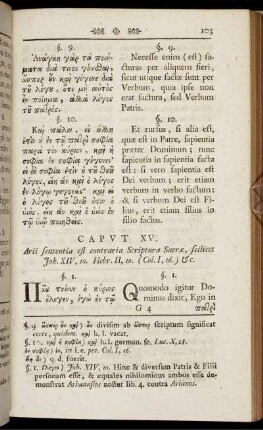 103
§. 9.
Ἀνάγκη γὰρ τὰ ποιή-
ματα διά τινος γένεσθαι,
ὥσπερ ἦν καὶ γέγονε διὰ
τῦ λόγυ, ὅτι μὴ αὐτὸς
ἦν ποίημα, ἀλλὰ λόγος
τῦ πατρός.
§. 10.
Καὶ πάλιν, εἰ
ἐν τῷ πατρὶ σοφία
παρὰ τὸν κύριον, καὶ ἡ
σοφία ἐν σοφίᾳ γέγονεν·
λόγος, ἔσται καὶ ἐν λόγῳ
λόγος
εἰ δὲ ὁ τῦ θεῦ υἱὸς,
ἔσται καὶ ὁ υἱὸς ἐν
τῷ υἱῷ
§. 9.
Necesse enim (est) fa-
cturas per aliquem fieri,
sicut utique factæ sunt per
Verbum, quia ipse non
erat factura, sed Verbum
Patris.
§. 10.
Et rursus, si alia est,
quæ est in Patre, sapientia
præter Dominum; tunc
sapientia in sapientia facta
est: si vero sapientia est
Dei verbum, erit etiam
verbum in verbo factum:
& si verbum Dei est Fi-
lius, erit etiam filius in
filio factus.
CAPVT XV.
Arii sententia est contraria Scripturæ Sacræ, scilicet
Joh. XIV, 10. Hebr. II, 10. (Col. I, 16.) &c.
§. 1.
Πῶς τοίνυν ὁ κύριος
ἔλεγεν, ἐγὼ ἐν τῷ
πατρὶ
§. 1.
Quomodo igitur Do-
minus dixit, Ego in
G 4
§. 9. ὥσπερ ἦν καὶ) ἦν divisim ab ὥσπερ scriptum significat
certe, quidem. καὶ h. l. vacat.
§. 10. καὶ ἡ σοφία) καὶ h. l. german. so. Luc. X, 21.
ἐν σοφίᾳ) ἐν, in i. e. per. Col. I, 16.
ἦν) q. d. fuerit.
§. 1. ἔλεγεν) Joh. XIV, 10. Hinc & diversam Patris & Filii
personam esse, & æquales nihilominus ambos esse de-
monstrat Athanasius noster lib. 4. contra Arianos.